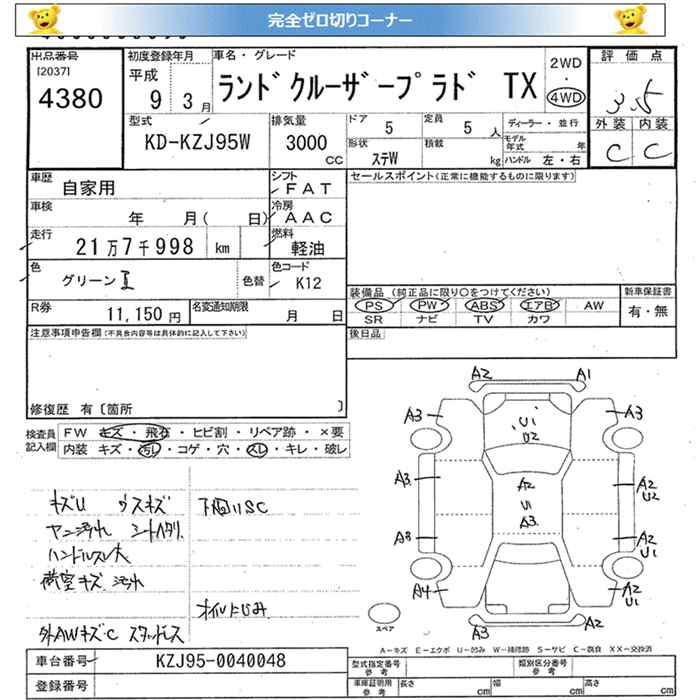 完全ゼロ切りコーナー
出品番号
[2037]
4380
初度登録年月
平成
9 3月
車名・グレード
ランドクルーザープラド TX
2WD
・
4WD
評価点
3.5
外装 内装
C C
型式
KD-KZJ95W
排気量
3000
CC
ドア
5
定員
5 人
ディーラー・並行
形状
ステW
積載
kg
モデル年式
年
ハンドル 左・右
車歴
自家用
シフト
FAT
セールスポイント(正常に機能するものに限ります)
車検
年 月( 日)
冷房
AAC
走行
21万7千998 km
燃料
軽油
色
グリーンⅡ
色替
色コード
K12
装備品 (純正品に限り○をつけてください)
新車保証書
PS PW ABS エアB AW
有・無
SR ナビ TV カワ
R券
11,150円
名変通知期限
月 日
後日品
注意事項申告欄(不具合内容等は具体的に記入して下さい)
修復歴 有〔箇所 〕
検査員
記入欄
FW キズ・飛石・ヒビ割・リペア跡・×要
内装 キズ・汚レ・コゲ・穴・スレ・キレ・破レ
キズU ウスキズ
下廻りSC
ヤニ汚れ シートヘタリ
ハンドルスレ大
荷室キズ 汚れ
オイルにじみ
外AWキズC スタッドレス
A2 A1
A3 A3
U1
U2
A3 A2 A2
U2
U1
A3
A3 A2
U1
A4 A2
U1
A3 A2
スペア
A-キズ E-エクボ U-凹み W-補修跡 S-サビ C-腐食 XX-交換済
車台番号
KZJ95-0040048
登録番号
型式指定番号
参考
類別区分番号
参考
車庫証明用
参考
長さ cm
幅 cm
高さ cm